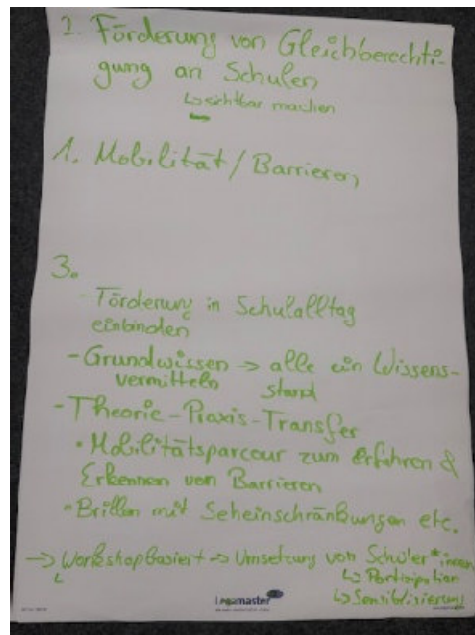 2. Förderung von Gleichberechti-
gung an Schulen
↳ sichtbar machen
1. Mobilität / Barrieren
3.
- Förderung in Schulalltag
einbinden
- Grundwissen → alle ein Wissens-
vermitteln stand
- Theorie-Praxis-Transfer
• Mobilitätsparcour zum Erfahren &
Erkennen von Barrieren
• Brillen mit Seheinschränkungen etc.
→ Workshopbasiert → Umsetzung von Schüler*innen
↳ Partizipation
↳ Sensibilisierung
Legamaster